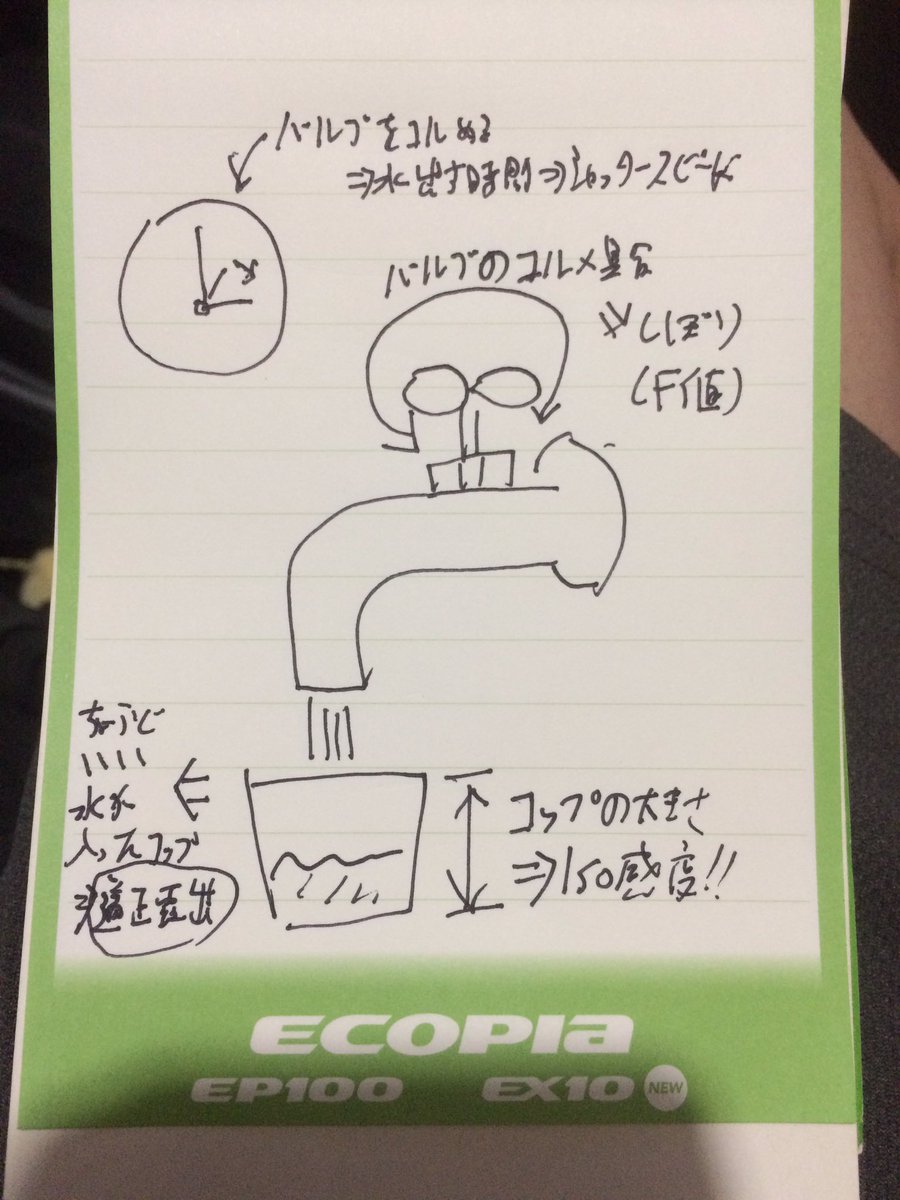 バルブをユルめる
⇒水出す時間⇒シャッタースピード
バルブのユルメ具合
⇒しぼり
(F値)
ちょうど
水が
入ったコップ
⇒適正露出
コップの大きさ
⇒ISO感度!!
ECOPIA
EP100 EX10 NEW